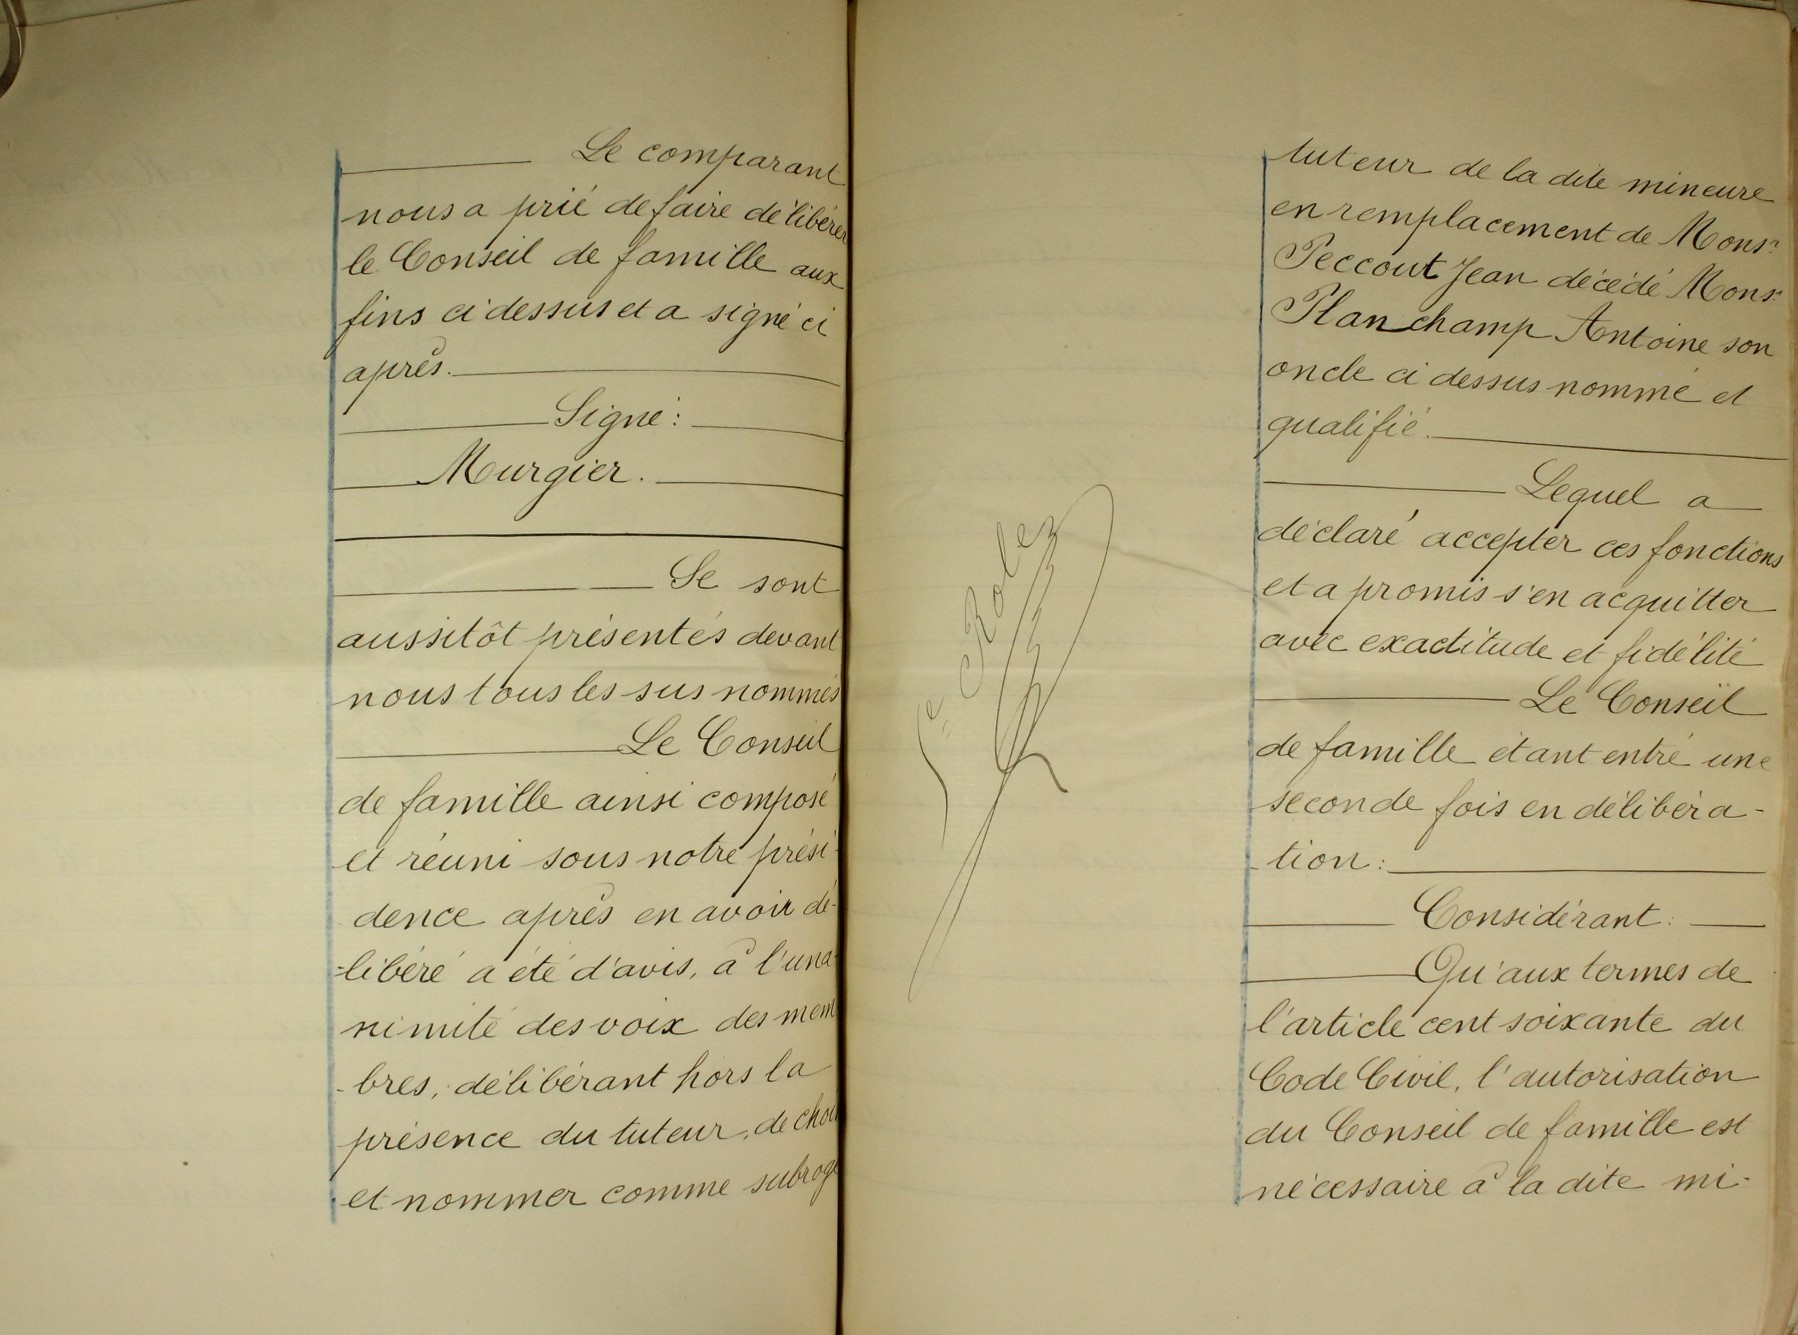 Le comparant
nous a prié de faire délibérer
le Conseil de famille aux
fins ci dessus et a signé ci
après.
Signé:
Murgier.
Se sont
aussitôt présentés devant
nous tous les sus nommés
Le Conseil
de famille ainsi composé
et réuni sous notre prési-
dence après en avoir dé-
-libéré a été d'avis, à l'una-
nimité des voix des mem
-bres, délibérant hors la
présence du tuteur, de
et nommer comme subrogé
tuteur de la dite mineure
en remplacement de Monsr
Peccout Jean décédé Monsr
Planchamp Antoine son
oncle ci dessus nommé et
qualifié.
Lequel a
déclaré accepter ces fonctions
et a promis s'en acquitter
avec exactitude et fidélité
Le Conseil
de famille étant entré une
seconde fois en délibéra-
-tion:
Considérant:
Qu'aux termes de
l'article cent soixante du
Code Civil, l'autorisation
du Conseil de famille est
nécessaire à la dite mi-